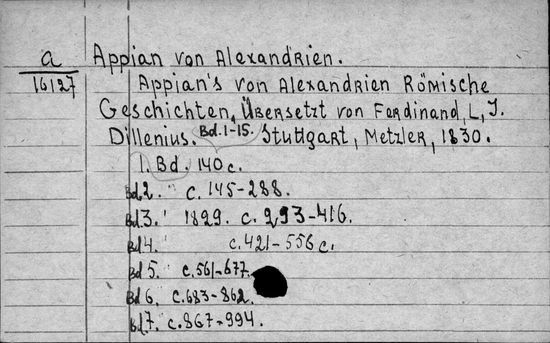 a Appian von Alexandrien.
16127 Appian's von Alexandrien Römische
Geschichten, Übersetzt von Ferdinand, L, J.
Dillenius. Bd. 1-15. Stuttgart, Metzler, 1830.
1. Bd. 140 c.
Bd. 2. " c. 145-288.
Bd. 3. ' 1829. c. 293-416.
Bd 4. c. 421-556 c.
Bd 5. c. 561-677.
Bd 6. c. 683-862.
Bd. 7. c. 867-994.